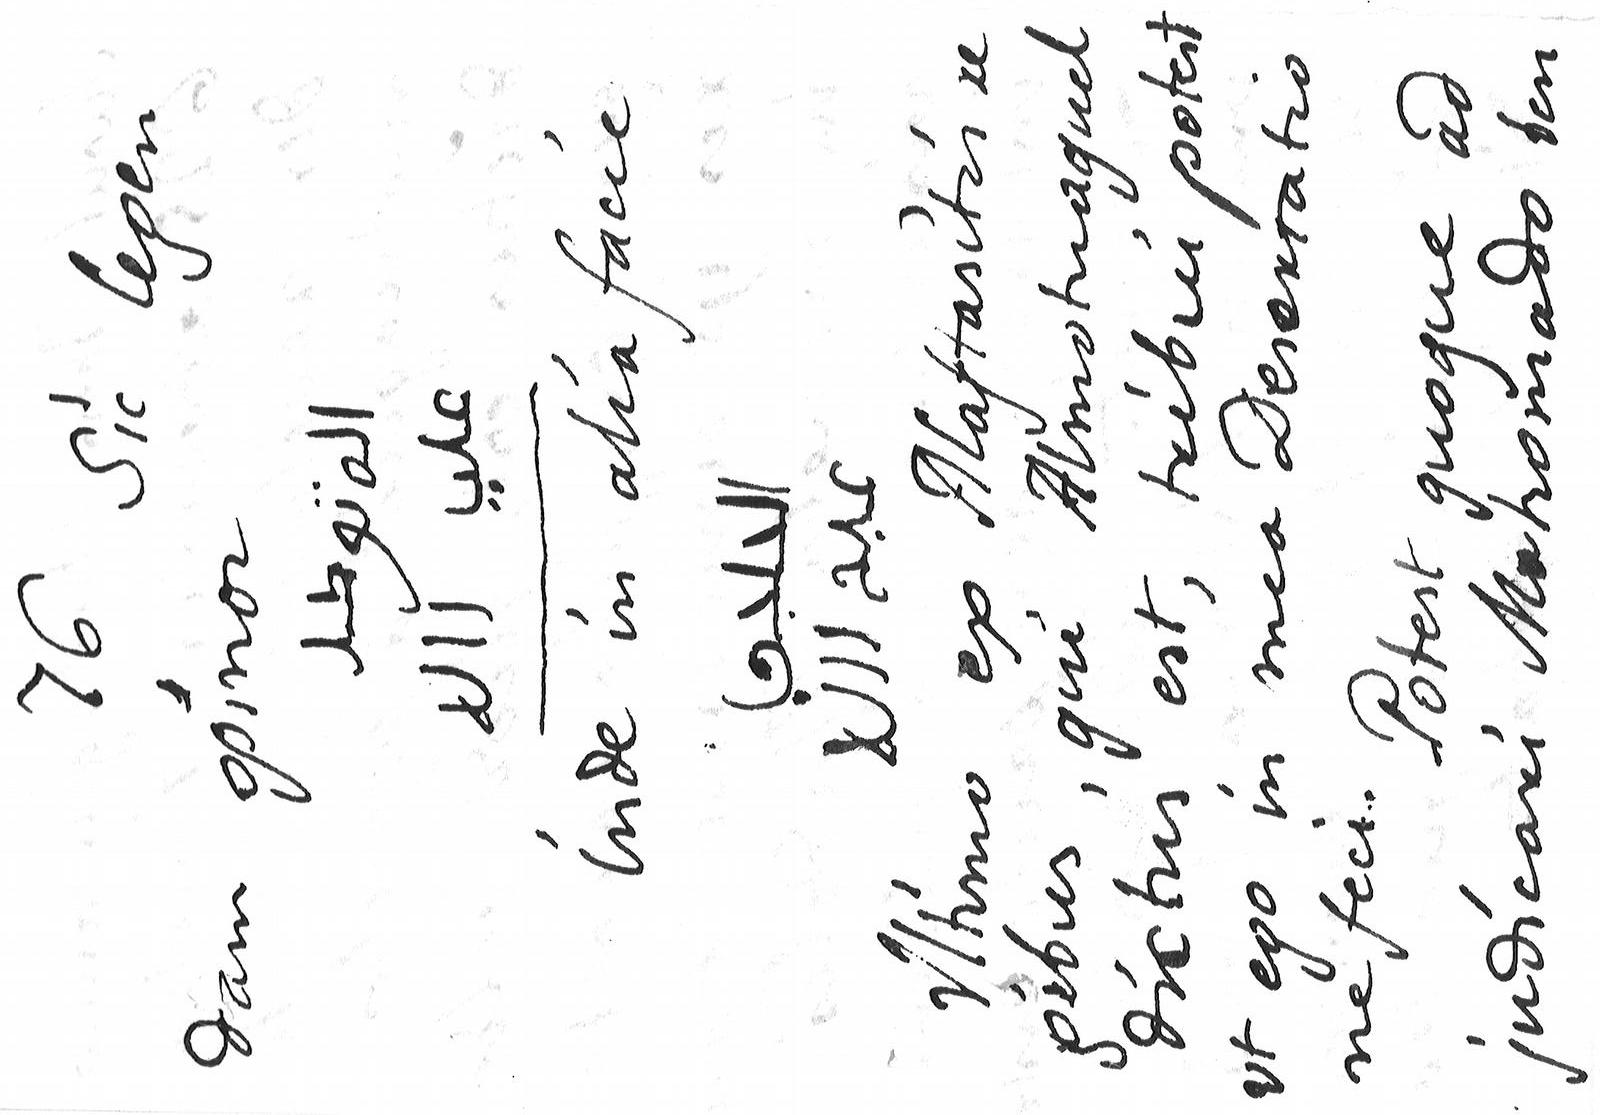 76 Sic legen
dam opinor
المتوكل
علي الله
Inde in alia facie
عبد الله
Vltimo ex Alaftasitis re
gibus, qui Almotuaquel
dictus est, tribui potest
vt ego in mea Desertatio
ne feci. Potest quoque ad
judicari Mahomado ben